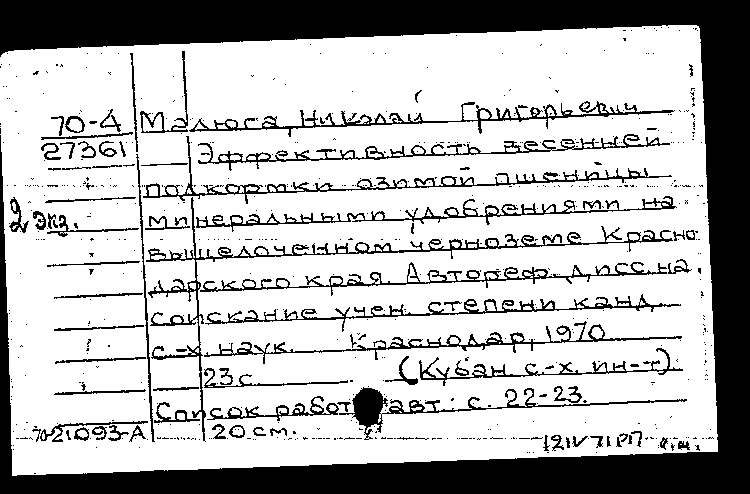 70-4 Малюса, Николай Григорьевич
27361 Эффективность весенней
подкормки озимой пшеницы
2 экз. минеральными удобрениями на
выщелоченном черноземе Красно-
дарского края. Автореф. дисс. на
соискание учен. степени канд.
с.-х. наук. Краснодар, 1970
23 с. (Кубан. с.-х. ин-т).
Список работ авт.: с. 22-23.
70-21093-А 20 см.